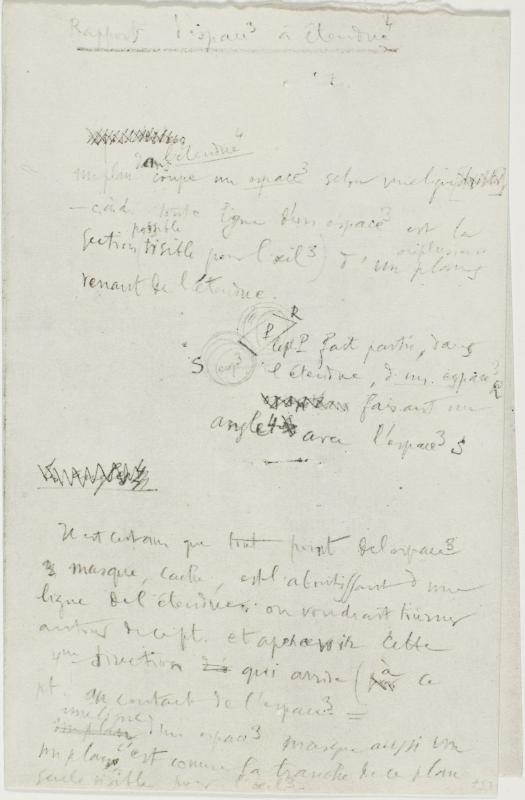 Rapport d'espace³ à étendue⁴
dans l'étendue⁴
un plan coupe un espace³ selon une ligne
— càd. toute ligne d'un espace³ est la
possible
section visible pour l'œil³) d'un plans
ou plusieurs
venant de l'étendue.
R
P
le pt. P fait partie, dans
S
esp³
l'étendue, d'un espace³ R
faisant un
angle 4 avec l'espace³ S
Il est certain que tout point de l'espace³
3 masque, cache, est l'aboutissant d'une
ligne de l'étendue. on voudrait tourner
autour de ce pt. et apercevoir cette
4ème direction qui arrive (à ce
pt. au contact de l'espace³. =
une ligne
un plan d'un espace³ masque aussi un
un plan, c'est comme la tranche de ce plan
seule visible pour l'œil³.